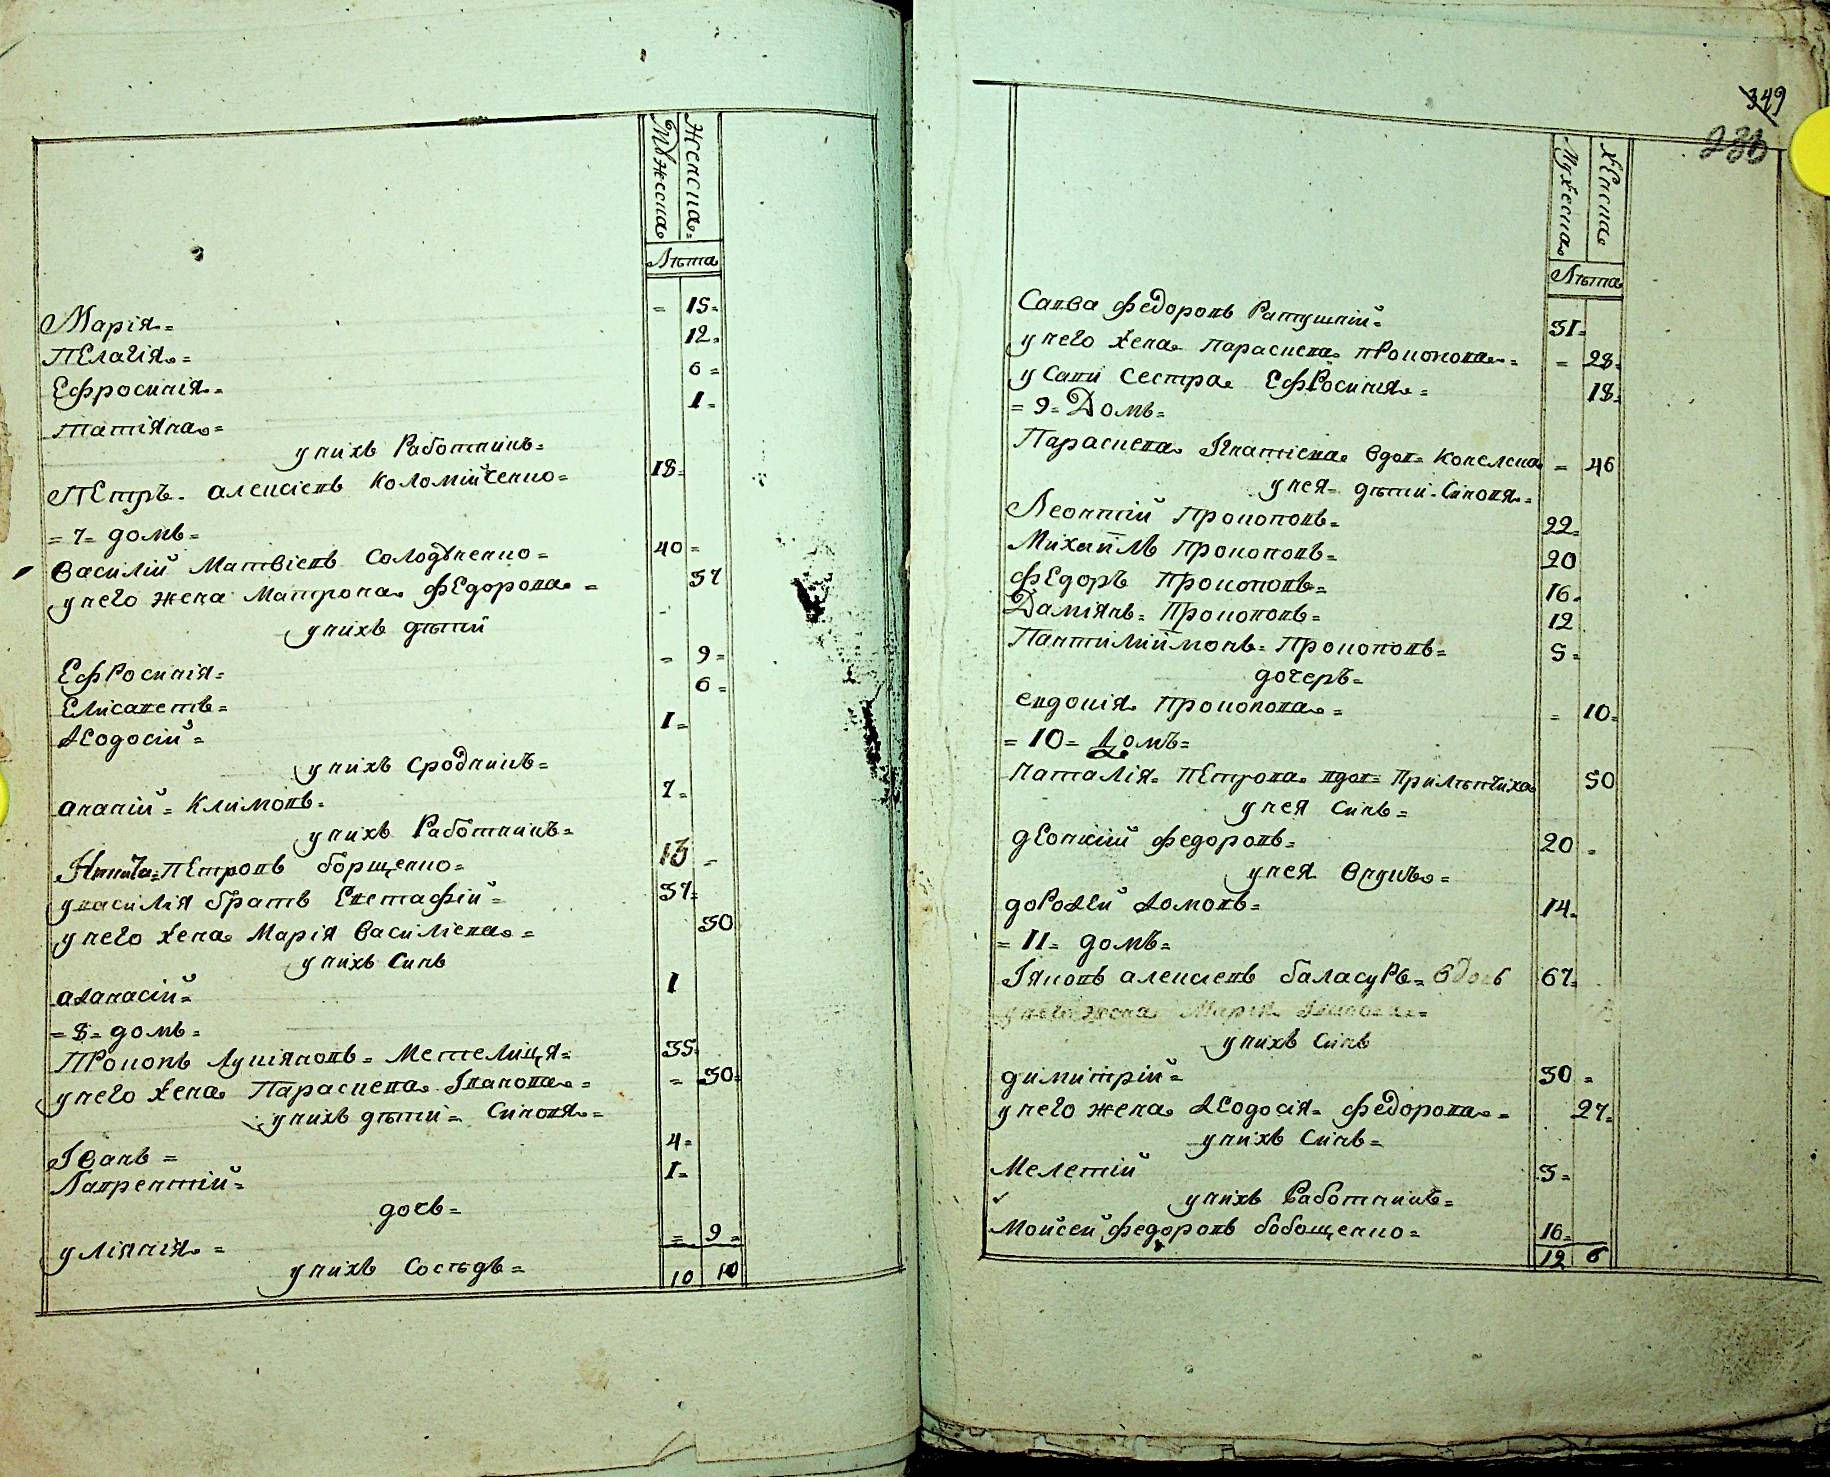 Мужеска Женска
Лѣта
Марія = 15
Пелагія = 12
Ефросинія = 6
Татіяна = 1
у нихъ Работникъ =
Петръ Алексіевъ Коломійченко = 18
= 7 = домъ =
Василій Матвіевъ Солодѣненко = 40
у него жена Матрона Федорова = 37
у нихъ дѣтій
Ефросинія = 9
Елисаветъ = 6
Ѳеодосій = 1
у нихъ сродникъ =
Ананій = Климовъ = 7
у нихъ Работникъ =
Петровъ борщенко = 13
у василія братъ Евстафій = 37
у него жена Марія Василіева = 30
у нихъ Синъ
аѳанасій = 1
= 8 = домъ =
Прокопъ Лукіяновъ = Метелиця = 35
у него жена Параскева Іванова = 30
у нихъ дѣти = Синовя =
Іванъ = 4
Лаврентій = 1
дочъ =
уліянія = 9
у нихъ Сосѣдъ =
10 10
349
Мужеска Женска
Лѣта
Савва Федоровъ Ратушній = 31
у него жена Параскева Прокопова = 28
у Сави Сестра Ефросинія = 18
= 9 = Домъ =
Параскева Ігнатіева вдов = Ковелска = 46
у нея дѣтій Синовя =
Леонтій Прокоповъ = 22
Михаилъ Прокоповъ = 20
Федоръ Прокоповъ = 16
Даміянъ = Прокоповъ = 12
Пантилиймонъ = Прокоповъ = 5
дочеръ =
Евдокія Прокопова = 10
= 10 = Домъ =
Наталія Петрова вдов = Прилѣпчиха 50
у нея синъ =
Леонтій Федоровъ = 20
у нея Внукъ =
дороѳей Ѳомовъ = 14
= 11 = домъ =
Іяковъ алексіевъ баласуръ = вдовъ 67
у него жена Марія
у нихъ Синъ
димитрій = 30
у него жена Ѳеодосія Федорова = 27
у нихъ Синъ =
Мелетій 3
у нихъ Работникъ =
Мойсей Федоровъ бобощенко = 16
12 6